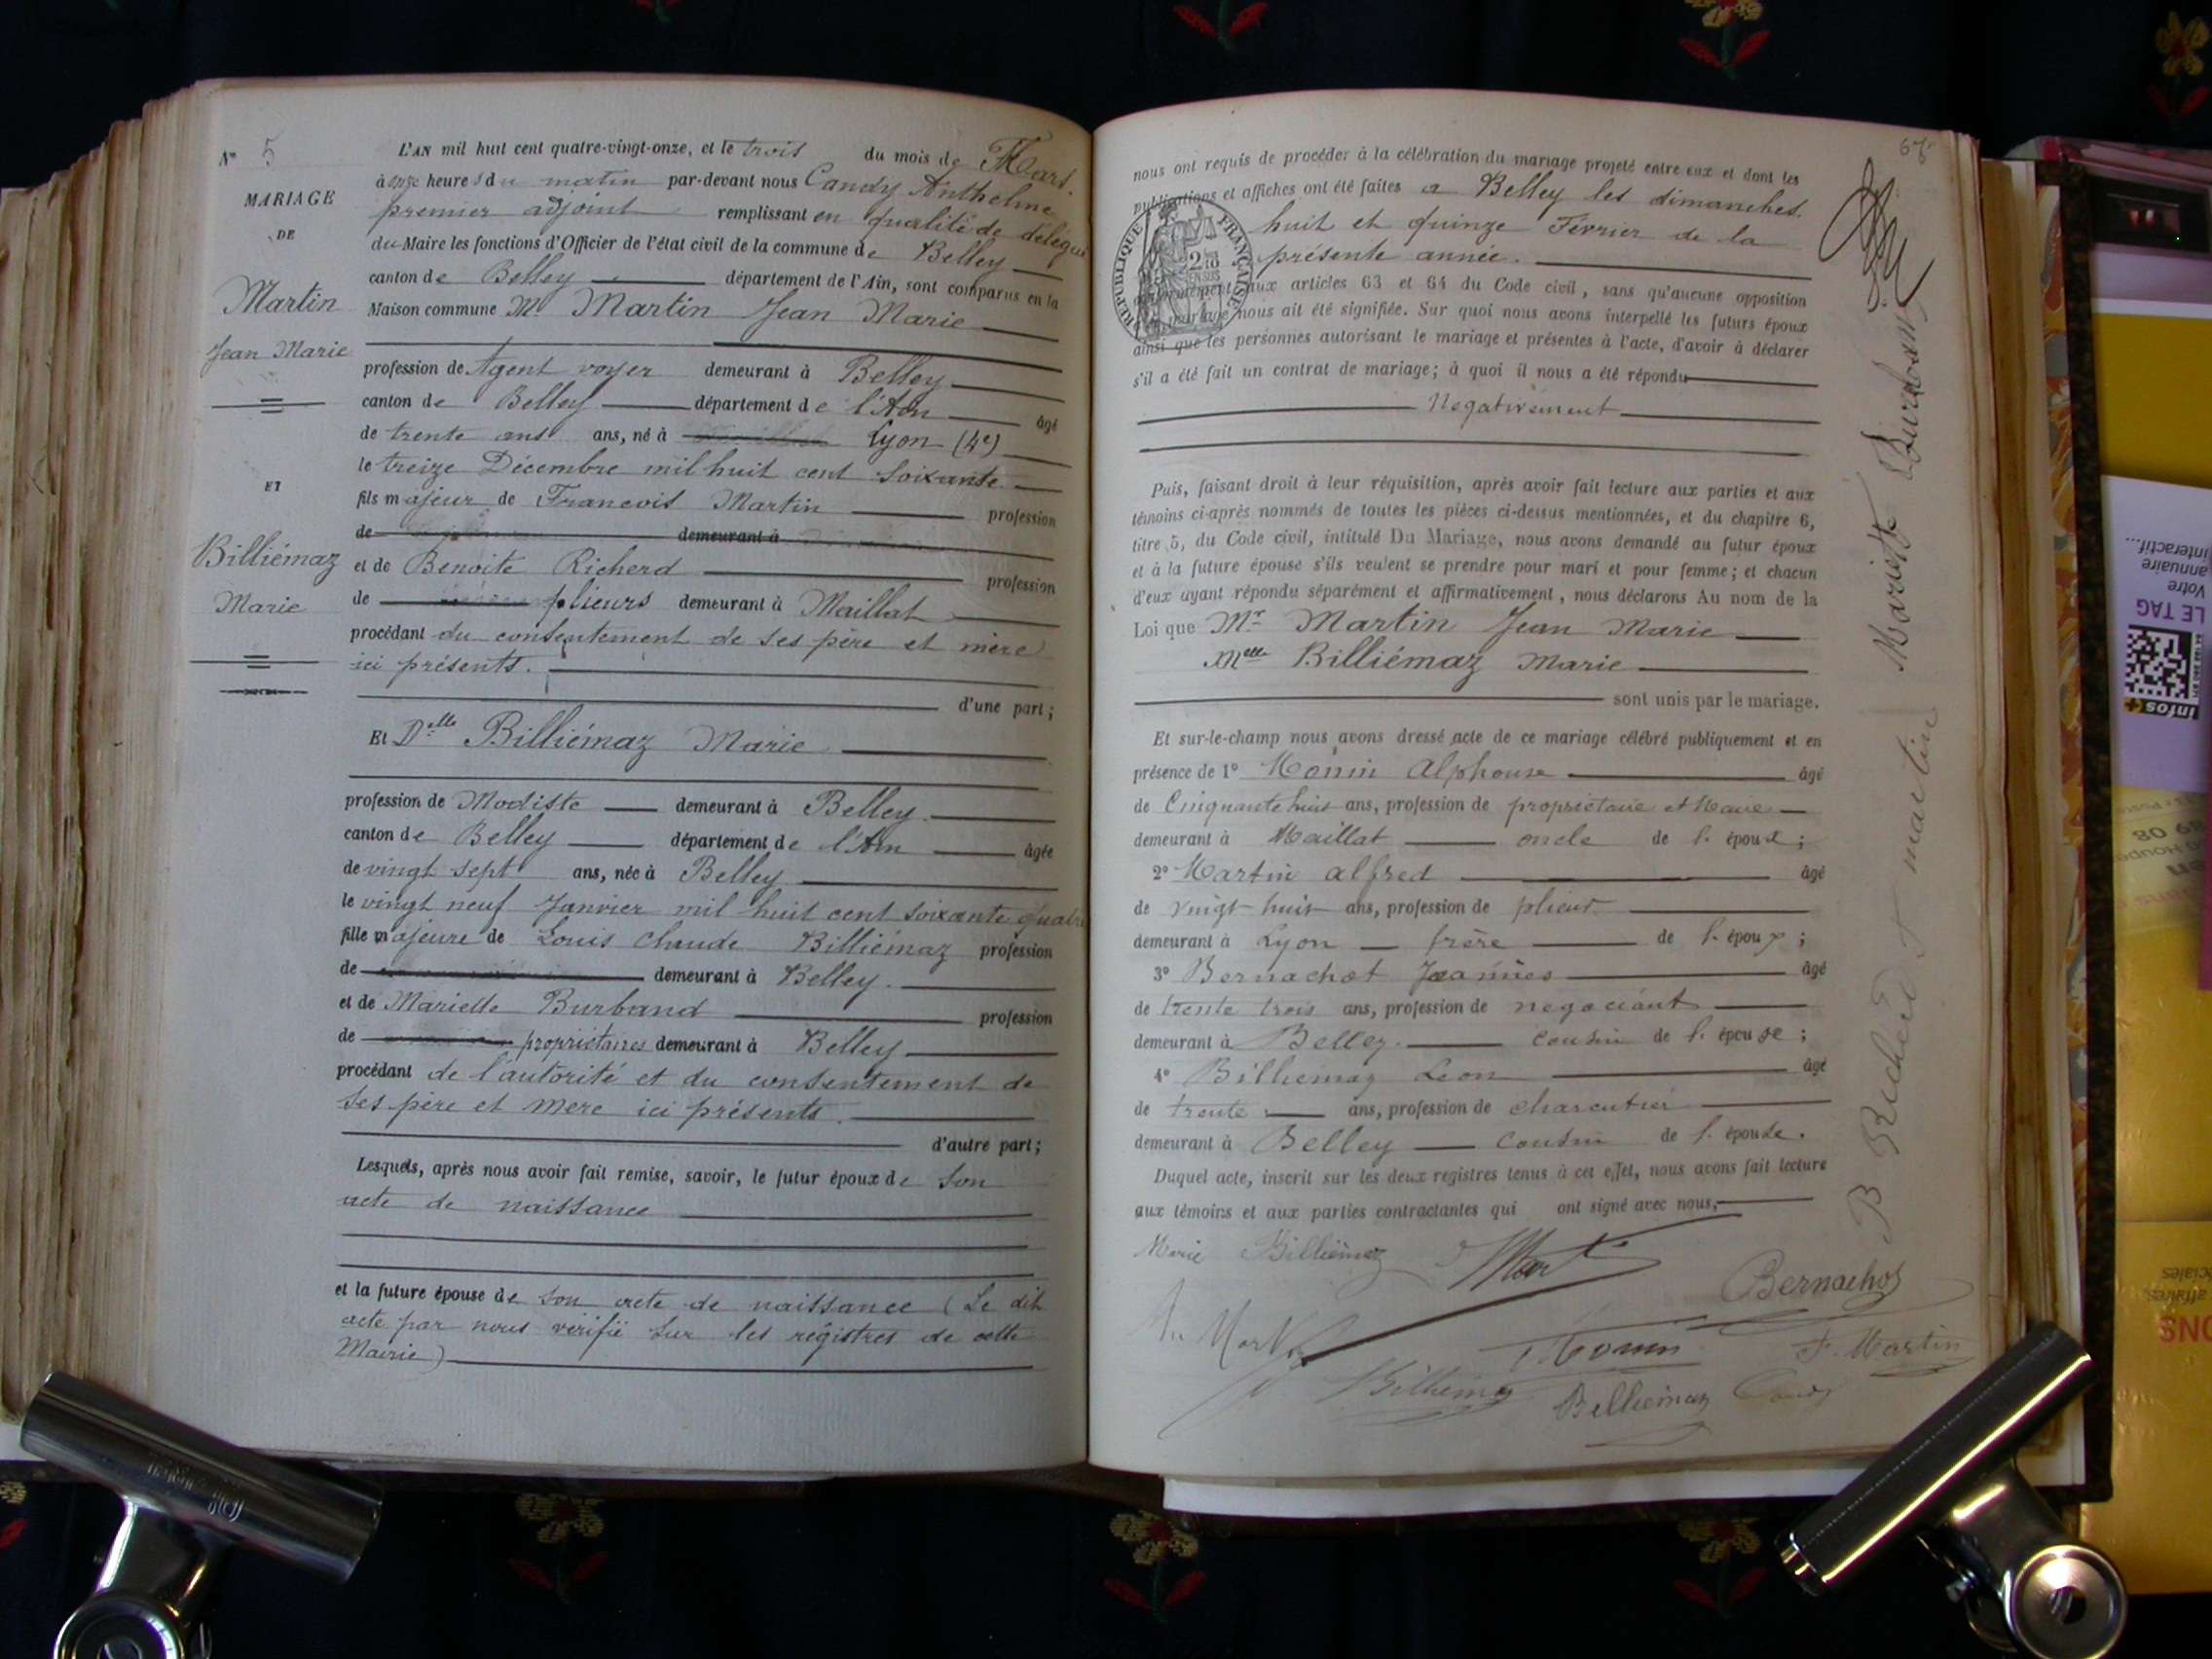 N° 5
MARIAGE
DE
Martin
Jean Marie
ET
Billiémaz
Marie
L'AN mil huit cent quatre-vingt-onze, et le trois du mois de Mars.
à onze heures du matin par-devant nous Candy Anthelme
premier adjoint remplissant en qualité de délégué
du Maire les fonctions d'Officier de l'état civil de la commune de Belley
canton de Belley département de l'Ain, sont comparus en la
Maison commune Mr Martin Jean Marie
profession de Agent voyer demeurant à Belley
canton de Belley département de l'Ain âgé
de trente ans ans, né à Lyon (4e)
le treize Décembre mil huit cent soixante.
fils majeur de Francois Martin profession
de demeurant à
et de Benoite Richerd profession
de plieurs demeurant à Maillat
procédant du consentement de ses père et mère
ici présents.
d'une part;
Et Delle Billiémaz Marie
profession de Modiste demeurant à Belley.
canton de Belley département de l'Ain âgée
de vingt sept ans, née à Belley
le vingt neuf Janvier mil huit cent soixante quatre
fille majeure de Louis Claude Billiémaz profession
de demeurant à Belley.
et de Mariette Burband profession
de propriétaires demeurant à Belley
procédant de l'autorité et du consentement de
ses père et mere ici présents.
d'autre part;
Lesquels, après nous avoir fait remise, savoir, le futur époux de son
acte de naissance
et la future épouse de son acte de naissance (Le dit
acte par nous vérifié sur les régistres de cette
Mairie)
67
nous ont requis de procéder à la célébration du mariage projeté entre eux et dont les
publications et affiches ont été faites a Belley les dimanches.
huit et quinze Février de la
présente année.
RÉPUBLIQUE FRANÇAISE
conformément aux articles 63 et 64 du Code civil, sans qu'aucune opposition
au mariage nous ait été signifiée. Sur quoi nous avons interpellé les futurs époux
ainsi que les personnes autorisant le mariage et présentes à l'acte, d'avoir à déclarer
s'il a été fait un contrat de mariage; à quoi il nous a été répondu
Négativement
Puis, faisant droit à leur réquisition, après avoir fait lecture aux parties et aux
témoins ci-après nommés de toutes les pièces ci-dessus mentionnées, et du chapitre 6,
titre 5, du Code civil, intitulé Du Mariage, nous avons demandé au futur époux
et à la future épouse s'ils veulent se prendre pour mari et pour femme; et chacun
d'eux ayant répondu séparément et affirmativement, nous déclarons Au nom de la
Loi que Mr Martin Jean Marie
Melle Billiémaz Marie
sont unis par le mariage.
Et sur-le-champ nous avons dressé acte de ce mariage célébré publiquement et en
présence de 1° Monin Alphonse âgé
de Cinquante huit ans, profession de propriétaire et Maire
demeurant à Maillat oncle de l'époux;
2° Martin alfred âgé
de vingt huit ans, profession de plieur
demeurant à Lyon frère de l'époux;
3° Bernachot Joannès âgé
de trente trois ans, profession de négociant
demeurant à Belley. cousin de l'épouse;
4° Billiemaz Leon âgé
de trente ans, profession de charcutier
demeurant à Belley cousin de l'épouse.
Duquel acte, inscrit sur les deux registres tenus à cet effet, nous avons fait lecture
aux témoins et aux parties contractantes qui ont signé avec nous,
Marie Billiémaz
Bernachot
Monin
F. Martin
Billiémaz
Billiemaz
Candy
Mariette Burband
B Richerd f martin
LE TAG
Votre
annuaire
interactif...
infos+